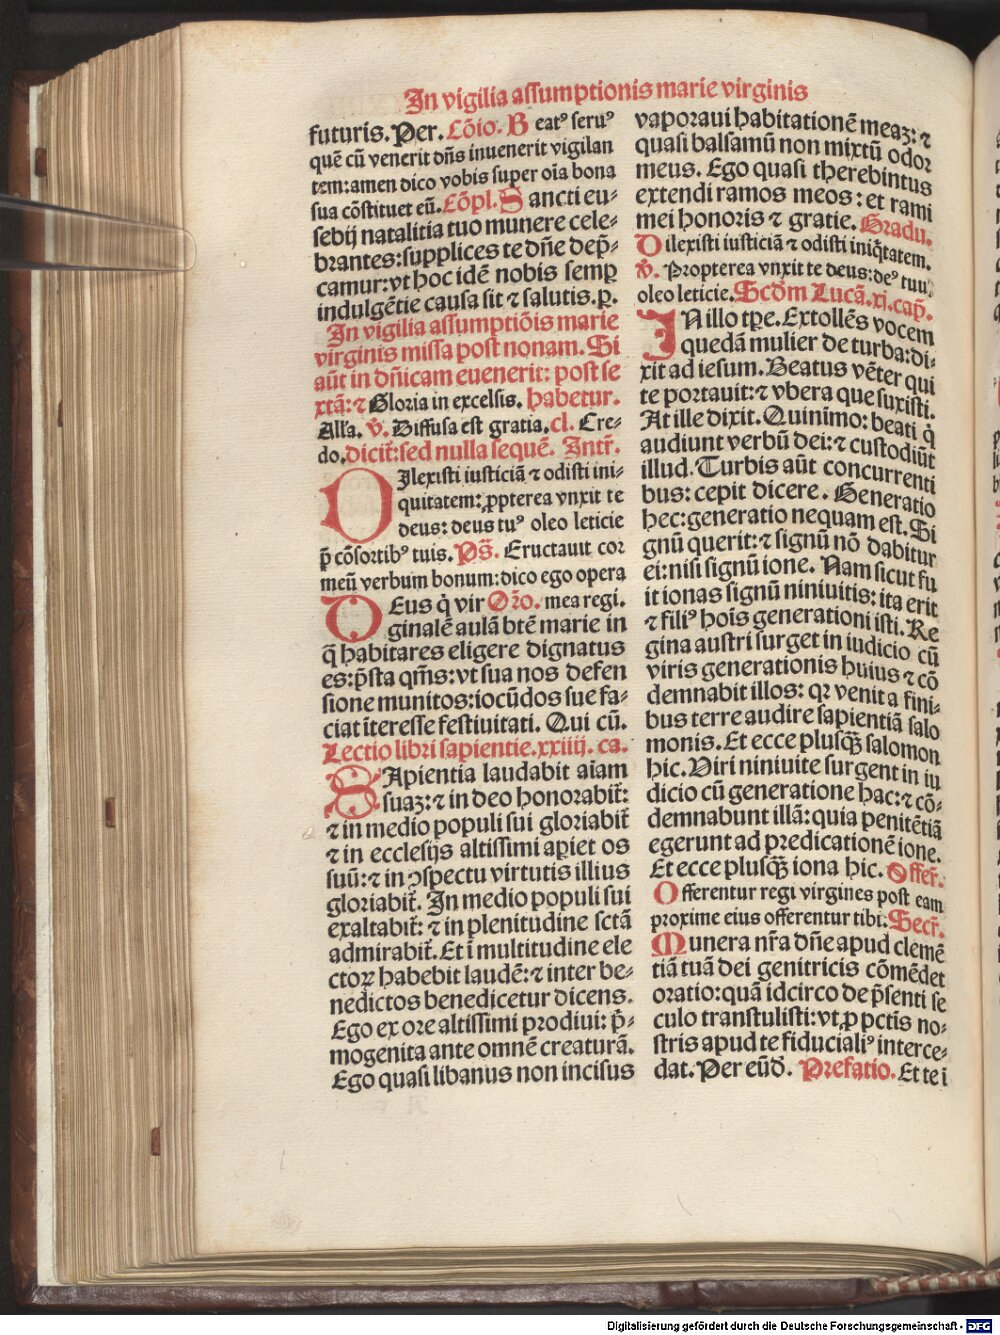 In vigilia assumptionis marie virginis
futuris. Per. Cōio. B eatꝰ seruꝰ
quē cū venerit dn̄s inuenerit vigilan
tem: amen dico vobis super oīa bona
sua cōstituet eū. Cōpl. S ancti eu⸗
sebij natalitia tuo munere cele⸗
brantes: supplices te dn̄e dep̄⸗
camur: vt hoc idē nobis semp̲
indulgētie causa sit ⁊ salutis. p̲.
In vigilia assumptiōis marie
virginis missa post nonam. Si
aūt in dn̄icam euenerit: post se
xtā: ⁊ Gloria in excelsis. habetur.
Alľa. ꝟ. Diffusa est gratia. cl. Cre⸗
do. dicit᷑: sed nulla sequē. Intr̄.
DIlexisti iusticiā ⁊ odisti ini⸗
quitatem: ꝓpterea vnxit te
deus: deus tuꝰ oleo leticie
p̄ cōsortibꝰ tuis. Ps̄. Eructauit cor
meū verbum bonum: dico ego opera
DEus q̇ vir Or̄o. mea regi.
ginalē aulā btē marie in
q̄ habitares eligere dignatus
es: p̄sta qm̄s: vt sua nos defen
sione munitos: iocūdos sue fa⸗
ciat īteresse festiuitati. Qui cū.
Lectio libri sapientie. xxiiij. ca.
SApientia laudabit aīam
suaꝫ: ⁊ in deo honorabit᷑:
⁊ in medio populi sui gloriabit᷑
⁊ in ecclesijs altissimi ap̲iet os
suū: ⁊ in ꝯspectu virtutis illius
gloriabit᷑. In medio populi sui
exaltabit᷑: ⁊ in plenitudine sctā
admirabit᷑. Et ī multitudine ele
ctoꝝ habebit laudē: ⁊ inter be⸗
nedictos benedicetur dicens.
Ego ex ore altissimi prodiui: ṗ⸗
mogenita ante omnē creaturā.
Ego quasi libanus non incisus
vaporaui habitationē meaꝫ: ⁊
quasi balsamū non mixtū odor
meus. Ego quasi therebintus
extendi ramos meos: et rami
mei honoris ⁊ gratie. Gradu.
D ilexisti iusticiā ⁊ odisti iniq̇tatem.
ꝟ. Propterea vnxit te deus: deꝰ tuꝰ
oleo leticie. Scd̄m Lucā. xj. cap̄.
IN illo tp̄e. Extollēs vocem
quedā mulier de turba: di⸗
xit ad iesum. Beatus vēter qui
te portauit: ⁊ vbera que suxisti.
At ille dixit. Quinīmo: beati q̇
audiunt verbū dei: ⁊ custodiūt
illud. Turbis aūt concurrenti
bus: cepit dicere. Generatio
hec: generatio nequam est. Si
gnū querit: ⁊ signū nō dabitur
ei: nisi signū ione. Nam sicut fu
it ionas signū niniuitis: ita erit
⁊ filiꝰ hoīs generationi isti. Re
gina austri surget in iudicio cū
viris generationis huius ⁊ cō
demnabit illos: qꝛ venit a fini⸗
bus terre audire sapientiā salo
monis. Et ecce plusqꝫ̄ salomon
hic. Viri niniuite surgent in iu
dicio cū generatione hac: ⁊ cō⸗
demnabunt illā: quia penitētiā
egerunt ad predicationē ione.
Et ecce plusqꝫ̄ iona hic. Offer̄.
O fferentur regi virgines post eam
proxime eius offerentur tibi. Secr̄.
M unera nr̄a dn̄e apud clemē
tiā tuā dei genitricis cōmēdet
oratio: quā idcirco de p̄senti se
culo transtulisti: vt, ꝓ pctīs no⸗
stris apud te fiducialiꝰ interce⸗
dat. Per eūd̄. Prefatio. Et te ī
Digitalisierung gefördert durch die Deutsche Forschungsgemeinschaft - DFG